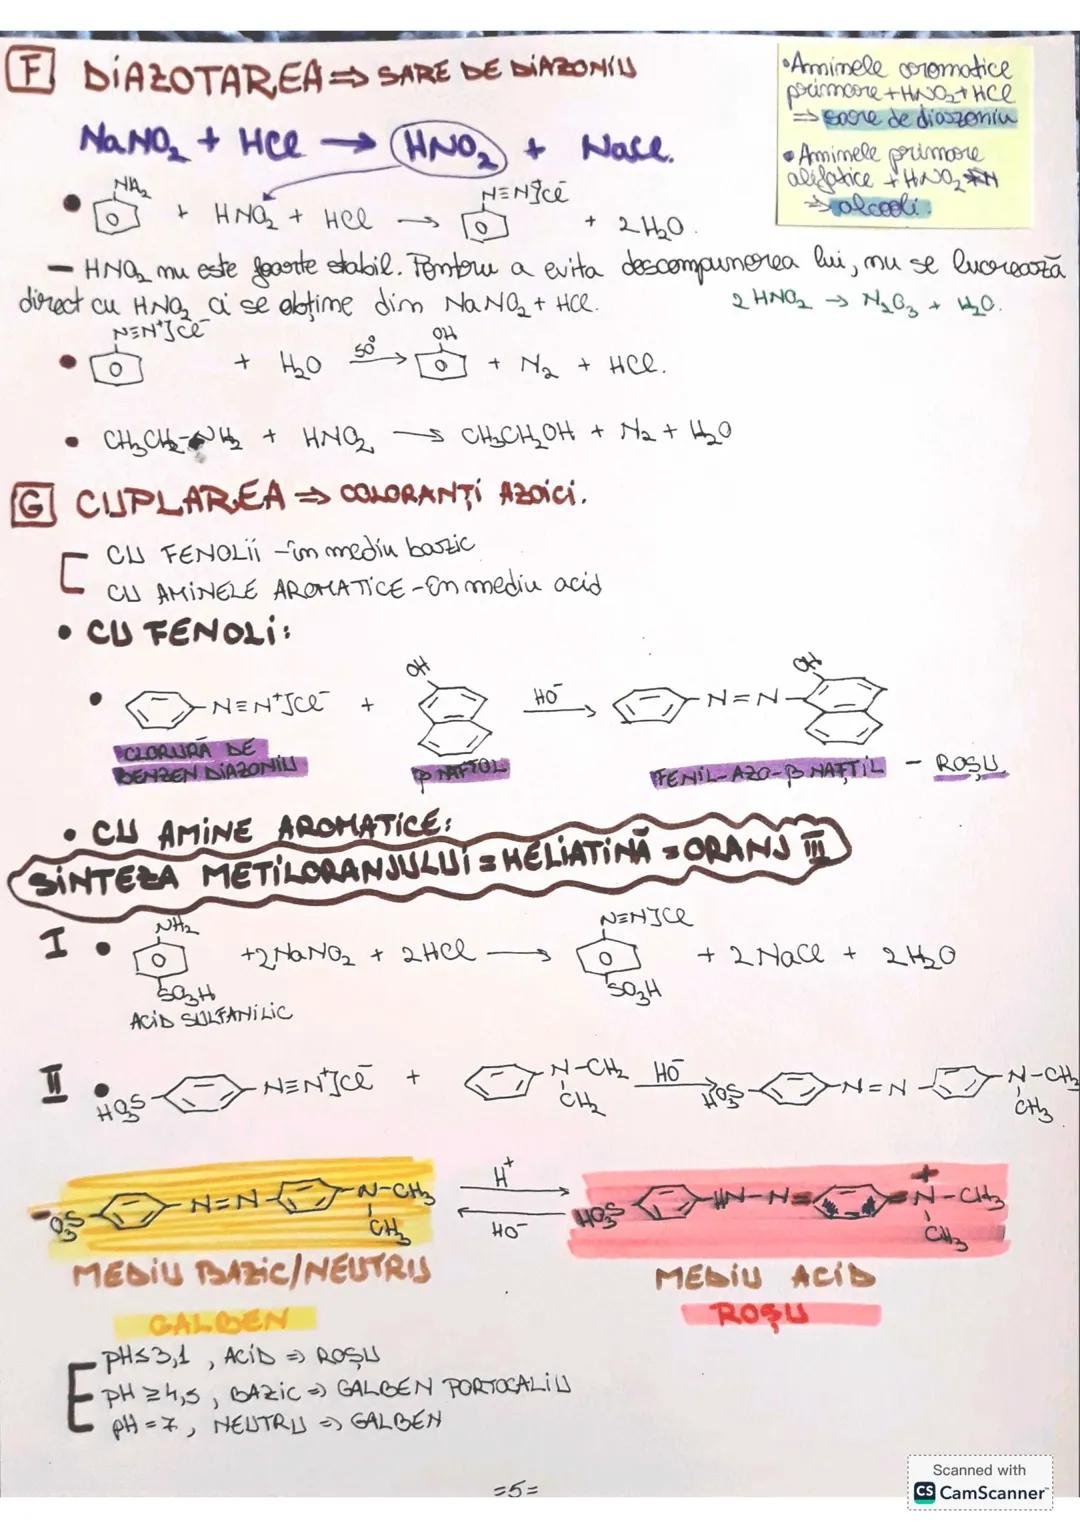 F DIAZOTAREA ⇒ SARE DE DIAZONIU
• Aminele aromatice
primare + HNO2 + HCl
⇒ sare de diazoniu
• Aminele primare
alifatice + HNO2
⇒ alcooli.
NaNO2 + HCl → HNO2 + NaCl.
• NH2 + HNO2 + HCl → N≡N]Cl⁻ + 2H2O.
— HNO2 nu este foarte stabil. Pentru a evita descompunerea lui, nu se lucrează
direct cu HNO2 ci se obține din NaNO2 + HCl. 2HNO2 → N2O3 + H2O.
• N≡N⁺]Cl⁻ + H2O 50° → OH + N2 + HCl.
• CH3CH2-NH2 + HNO2 → CH3CH2OH + N2 + H2O
G CUPLAREA ⇒ COLORANȚI AZOICI.
CU FENOLII - în mediu bazic
CU AMINELE AROMATICE - în mediu acid
• CU FENOLI:
• -N≡N⁺]Cl⁻ + OH HO⁻ → -N=N- OH
CLORURĂ DE
BENZEN DIAZONIU
β NAFTOL
FENIL-AZO-β NAFTIL - ROȘU.
• CU AMINE AROMATICE:
SINTEZA METILORANJULUI = HELIATINĂ = ORANJ III
I • NH2 SO3H + 2NaNO2 + 2HCl → N≡N]Cl SO3H + 2NaCl + 2H2O
ACID SULFANILIC
II • HO3S- -N≡N⁺]Cl⁻ + -N-CH2 CH2 HO⁻ → HO3S- -N=N- -N-CH3 CH3
⁻O3S- -N=N- -N-CH3 CH3 H⁺ HO⁻ HO3S- -HN-N= =N⁺-CH3 CH3
MEDIU BAZIC/NEUTRU
MEDIU ACID
GALBEN
ROȘU
pH≤3,1, ACID ⇒ ROȘU
pH ≥4,5, BAZIC ⇒ GALBEN PORTOCALIU
pH = 7, NEUTRU ⇒ GALBEN
=5=
Scanned with
CS CamScanner